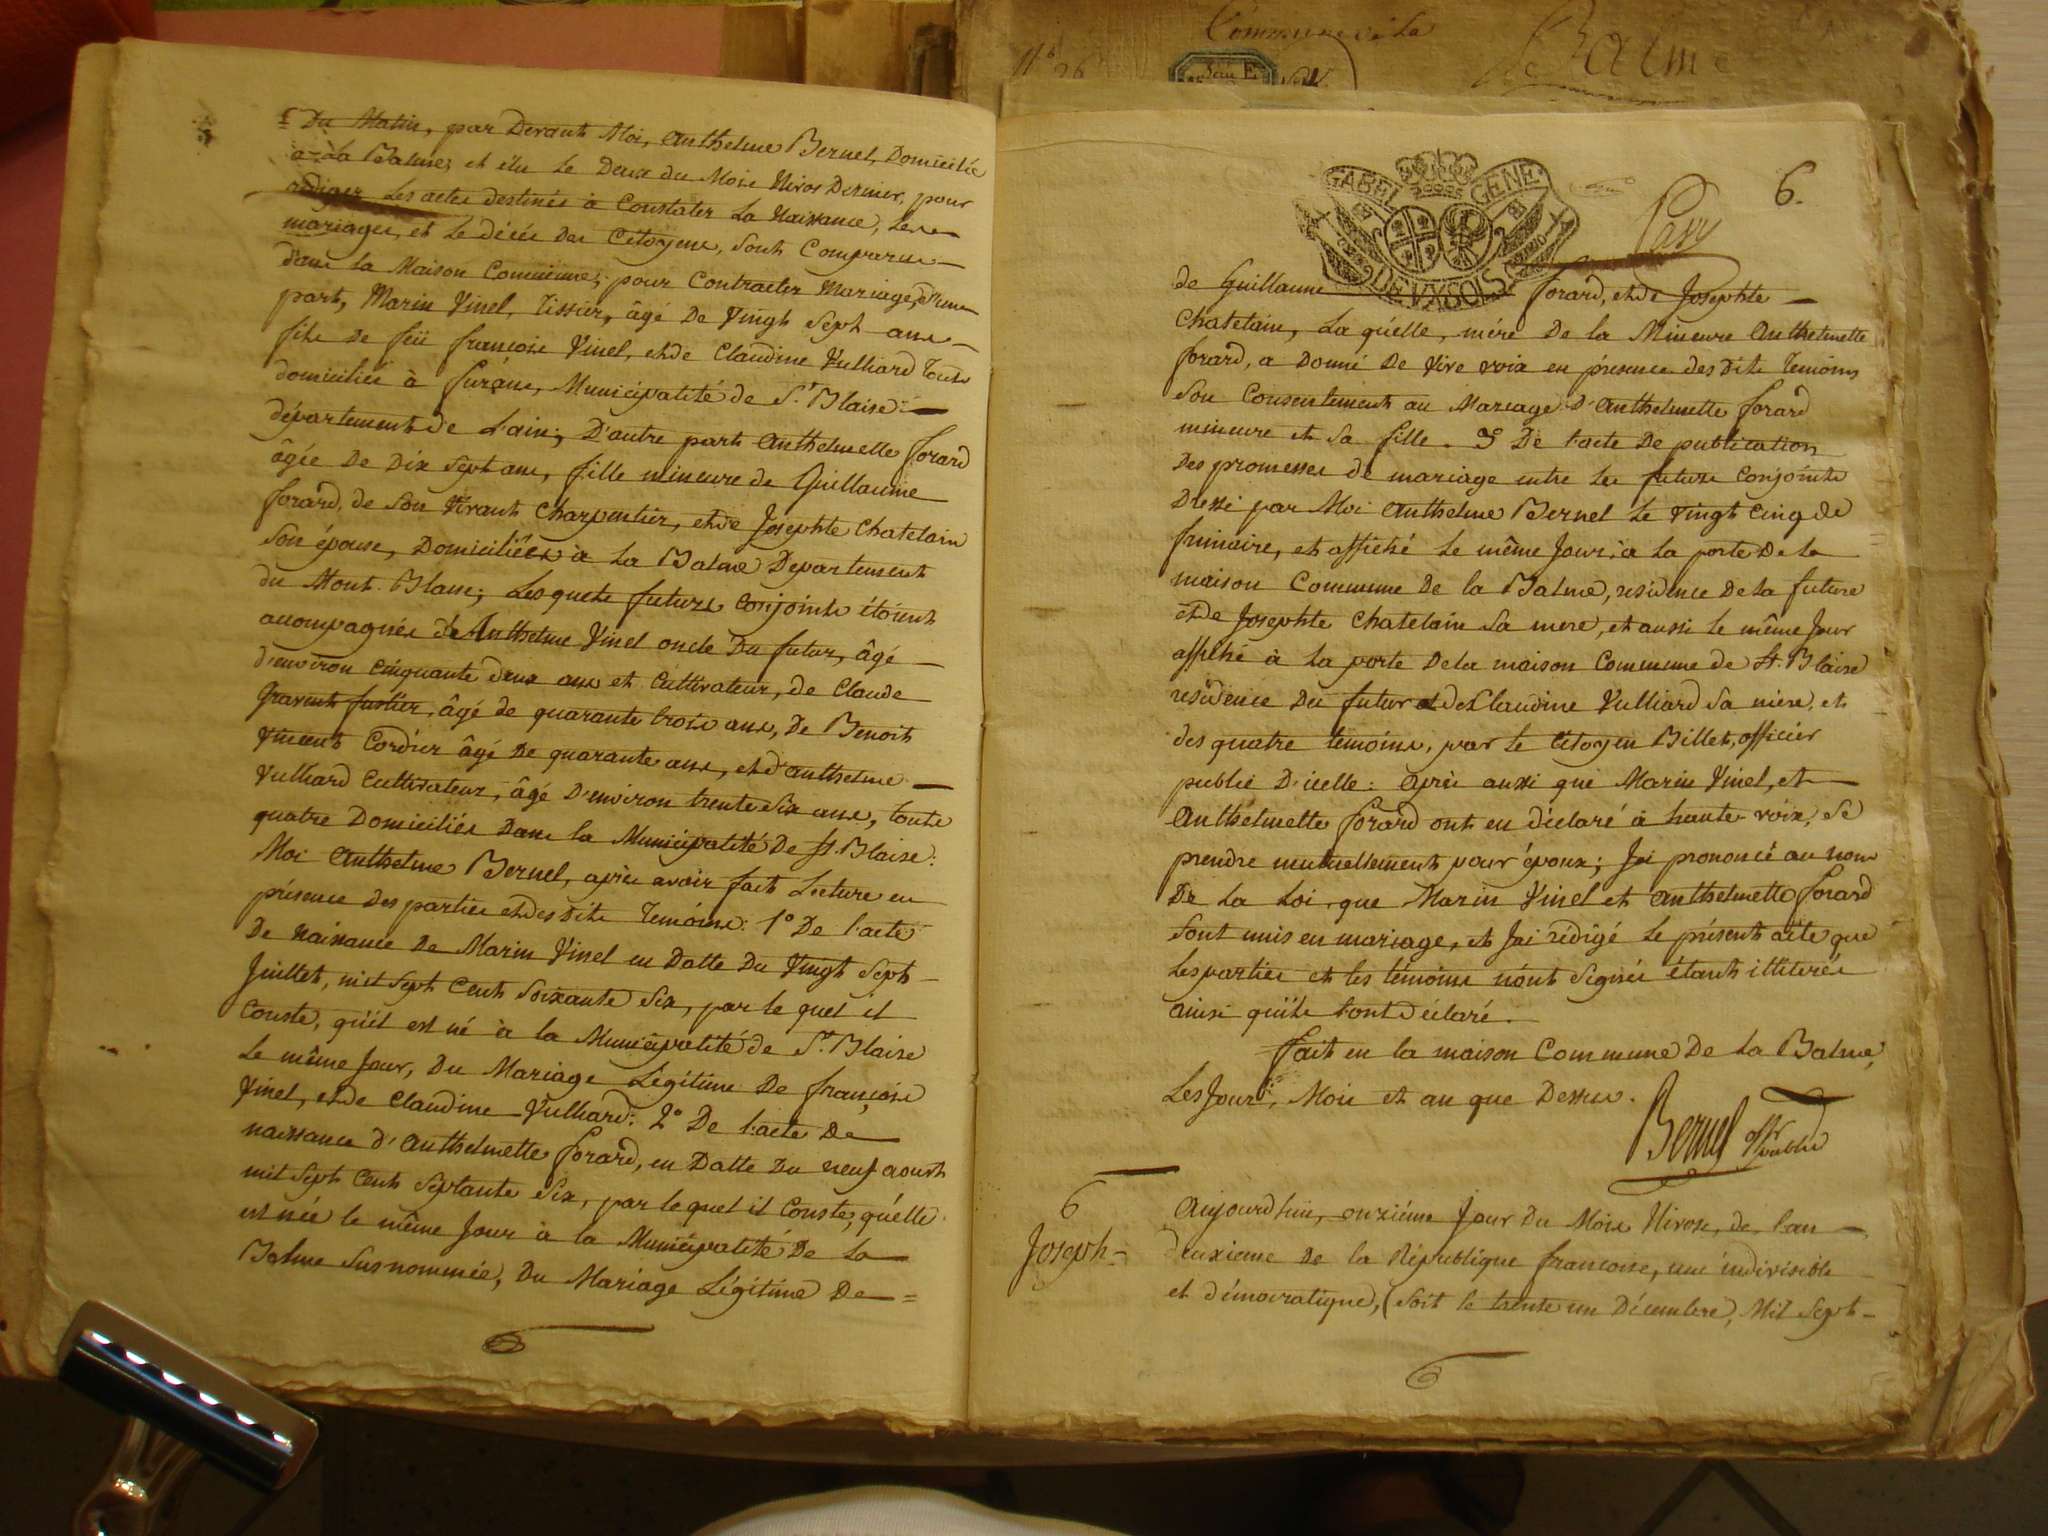 Du Matin, par Devant Moi, Anthelme Bernel, Domicilié
a La Balme, et élu Le Deux du Mois Nivos Dernier, pour
rédiger Les actes destinés à Constater La Naissance, Les
mariages, et Le décés des Citoyens, sont Comparus
dans la Maison Commune, pour Contracter Mariage, d'une
part, Marin Vinel, Tissier, âgé De Vingt Sept ans
fils De feü françois Vinel, et de Claudine Vulliard Touts
domiciliés à furans, Municipalité de St. Blaise
département de Lain; D'autre part Anthelmette forard
âgée De Dix Sept ans, fille mineure de Guillaume
forard, de Son Vivant Charpentier, et de Josephte Chatelain
Son épouse, Domiciliées à La Balme Departement
du Mont-Blanc; Lesquels futurs Conjoints étoient
accompagnés de Anthelme Vinel oncle Du futur, âgé
d'environ Cinquante deux ans et Cultivateur, de Claude
Gravent fustier, âgé de quarante trois ans, De Benoit
Vincent Cordier âgé De quarante ans, et d'anthelme
Vulliard Cultivateur, âgé D'environ trente Six ans, touts
quatre Domiciliés Dans la Municipalité De St. Blaise:
Moi Anthelme Bernel, après avoir fait Lecture en
présence Des parties et des dits Temoins: 1° De l'acte
De Naissance De Marin Vinel en Datte Du Vingt Sept
Juillet, mil Sept Cent Soixante Six, par le quel il
Conste, qu'il est né à la Municipalité de St. Blaise
Le même Jour, Du Mariage Légitime De françois
Vinel, et de Claudine Vulliard: 2° De l'acte De
naissance d'Anthelmette forard, en Datte Du neuf aoust
mil Sept Cent Septante Six, par le quel il Conste, qu'elle
est née le même Jour à la Municipalité De La
Balme Susnommée, Du Mariage Légitime De =
Commune de La
Balme
N° 26
GABEL GENE
DEUX SOLS
6.
de Guillaume forard, et de Josephte
Chatelain, La qu'elle, mére De la Mineure Anthelmette
forard, a Donné De Vive voix en présence des dits Temoins
Son Consentement au Mariage D'Anthelmette forard
mineure et Sa fille. 3° De l'acte De publication
Des promesses de mariage entre Les futurs Conjoints
Dressé par Moi Anthelme Bernel Le Vingt Cinq de
frimaire, et affiché le même Jour, à la porte De la
maison Commune De la Balme, résidence De la future
et de Josephte Chatelain Sa mere, et aussi le même Jour
affiché à la porte De la maison Commune de St. Blaise
résidence Du futur et de Claudine Vulliard Sa mère, et
des quatre temoins, par le Citoyen Billet, officier
public D'icelle: après aussi que Marin Vinel, et
Anthelmette forard ont eu déclaré à haute voix, Se
prendre mutuellement pour époux; J'ai prononcé au nom
De La Loi, que Marin Vinel et Anthelmette forard
Sont unis en mariage, et J'ai rédigé Le présent acte que
Les parties et les témoins n'ont Signés étants illiterés
ainsi qu'ils l'ont déclaré.
fait en la maison Commune De La Balme,
Les Jour, Mois et an que Dessus.
Bernel offr public
6
Joseph-
Aujourdhui, onziéme Jour Du Mois Nivose, de l'an
deuxieme De la République françoise, une indivisible
et démocratique, (Soit le trente un Décembre, Mil Sept-